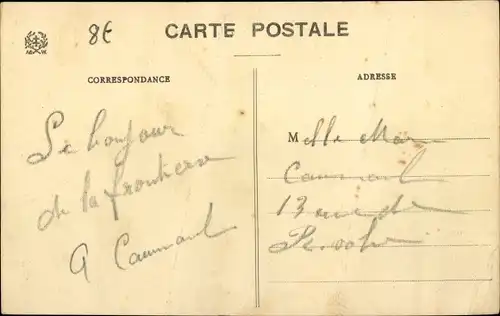 8€
CARTE POSTALE
CORRESPONDANCE
ADRESSE
Le bonjour
de la frontière
A Caumont
Melle Mar
Caumont
13 rue de